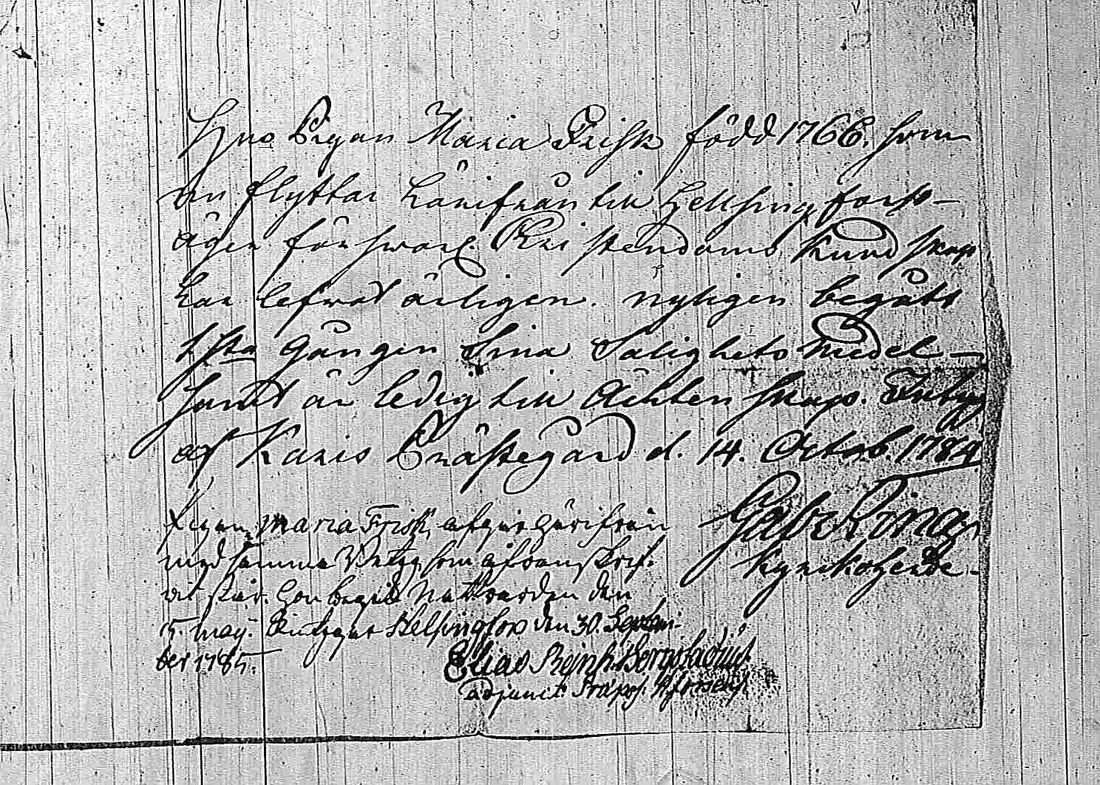 Pigan Maria Frisk född 1766. som
nu flyttar härifrån till Hellsingforss –
äger försvarl. Kristendoms Kundskap
har lefvat ärligen. nyligen begått
1sta Gången Sina Salighets Medel –
samt är ledig till Ächtenskap. Intyg
af Karis Prästegård d. 14. Octob. 1784
Gabr. Bonge
Kyrkoherde.
Pigan Maria Frisk afgår härifrån
med samma som
står. Hon begick Nattvarden den
15. maij. Helsingfors den 30. Septem-
ber 1785.
Elias Reinh. Bergstadius
adjunct